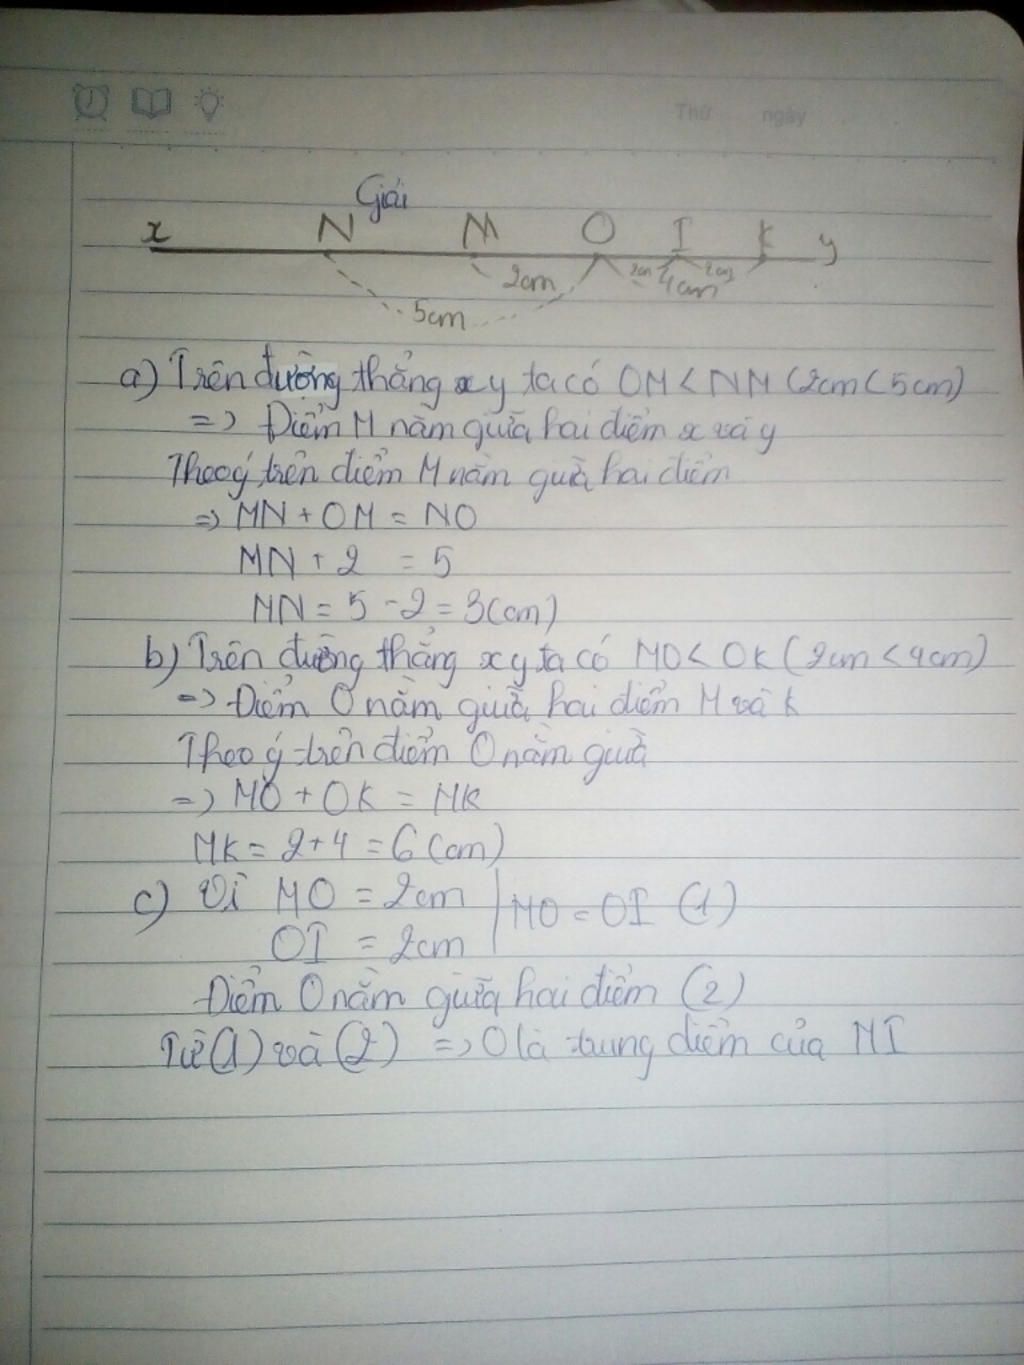 Thứ ngày
Giải
x N M O I K y
2cm 2cm 2cm
4cm
5cm
a) Trên đường thẳng xy ta có OM < NM (2cm < 5cm)
=> Điểm M nằm giữa hai điểm x và y
Theo ý trên điểm M nằm giữa hai điểm
=> MN + OM = NO
MN + 2 = 5
MN = 5 - 2 = 3(cm)
b) Trên đường thẳng xy ta có MO < OK (2cm < 4cm)
=> Điểm O nằm giữa hai điểm M và K
Theo ý trên điểm O nằm giữa
=> MO + OK = MK
MK = 2 + 4 = 6 (cm)
c) Vì MO = 2cm | MO = OI (1)
OI = 2cm
Điểm O nằm giữa hai điểm (2)
Từ (1) và (2) => O là trung điểm của MI